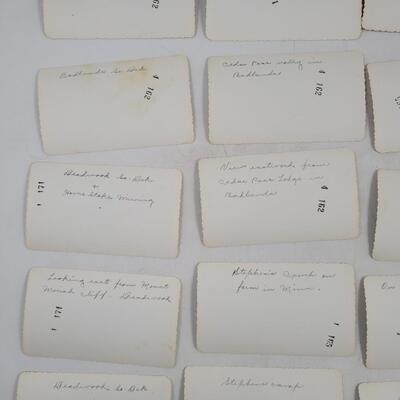 162
Badlands So. Dak
162
Cedar Pass valley in
Badlands
162
Deadwood So. Dak
+
Home Stake Mining
121
View eastward from
Cedar Pass Lodge in
Badlands
162
Looking east from Mount
Moriah cliff. Deadwood
121
Stephens on
farm in Minn.
Deadwood So. Dak
Stephens camp
On